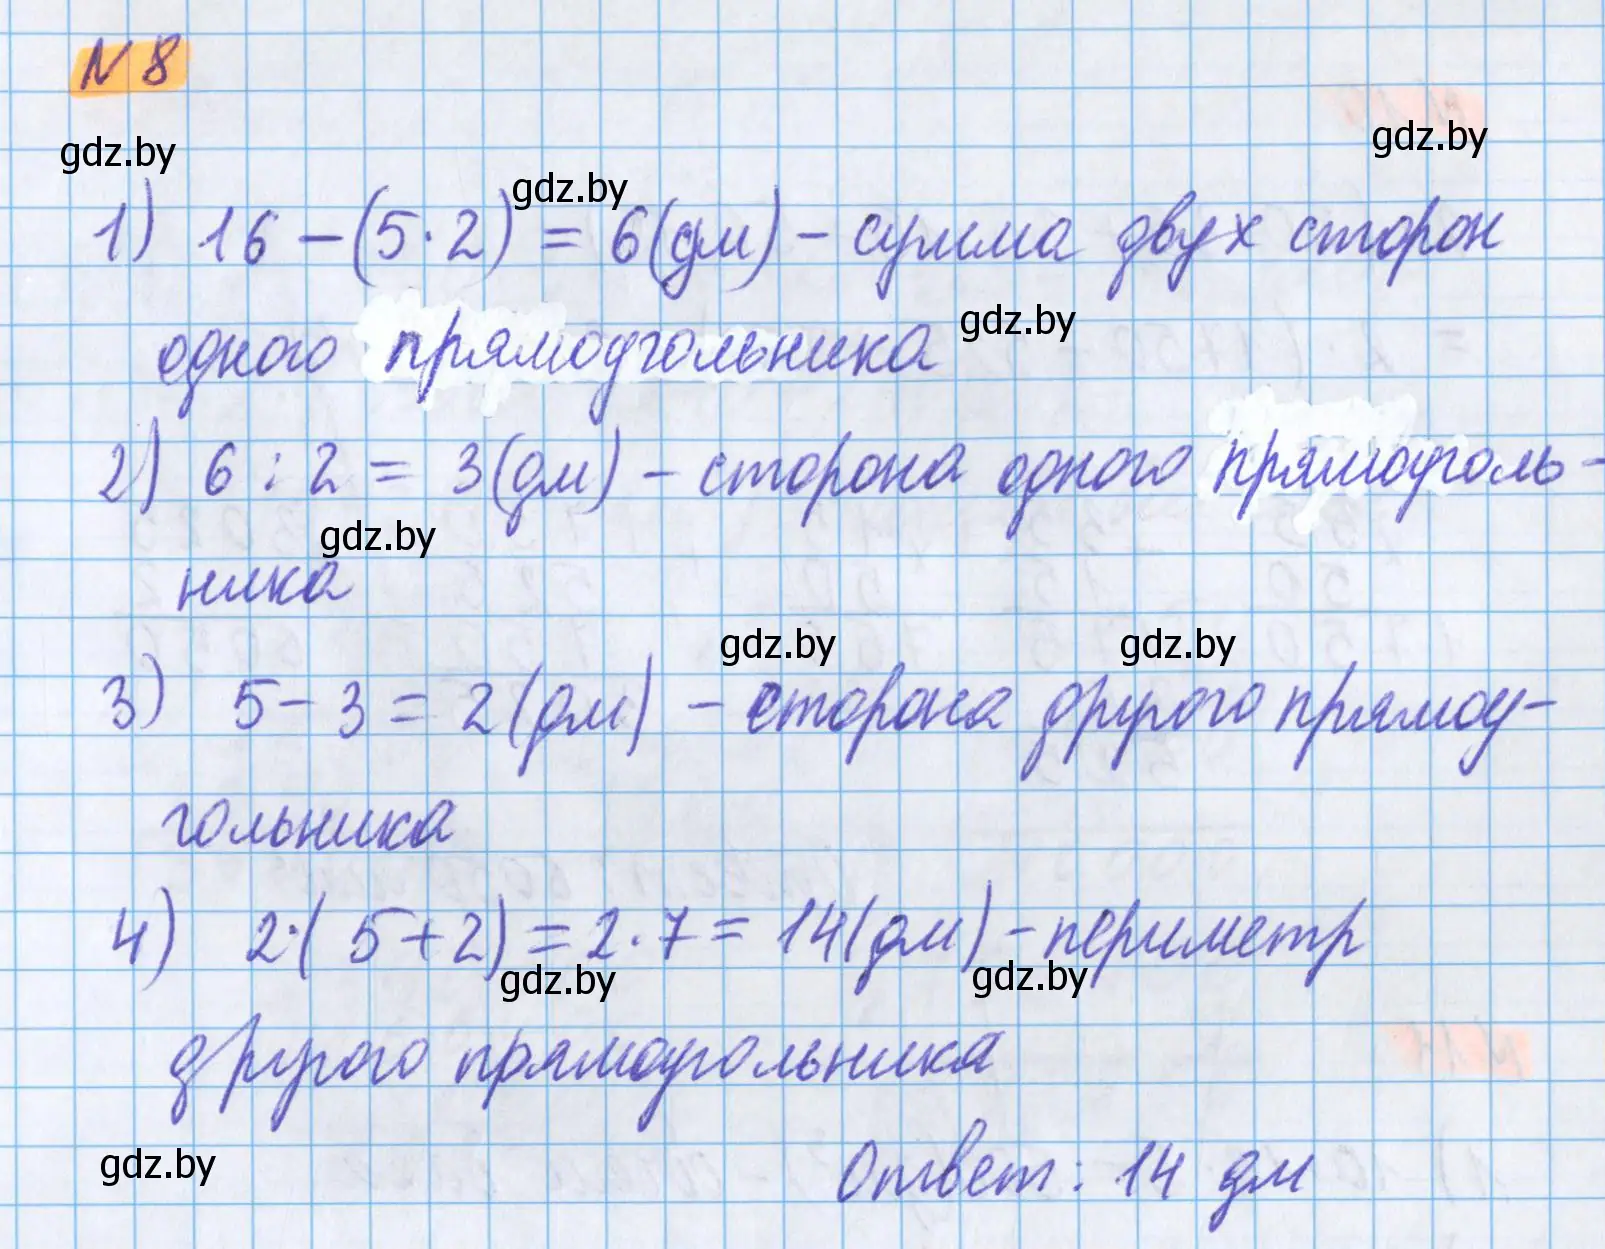 N 8
gdz.by
gdz.by
gdz.by
1) 16 - (5·2) = 6(дм) - сумма двух сторон
gdz.by
одного прямоугольника
2) 6 : 2 = 3(дм) - сторона одного прямоуголь-
gdz.by
ника
gdz.by
gdz.by
3) 5 - 3 = 2(дм) - сторона другого прямоу-
гольника
4) 2·(5+2) = 2·7 = 14(дм) - периметр
gdz.by
gdz.by
другого прямоугольника
gdz.by
Ответ: 14 дм